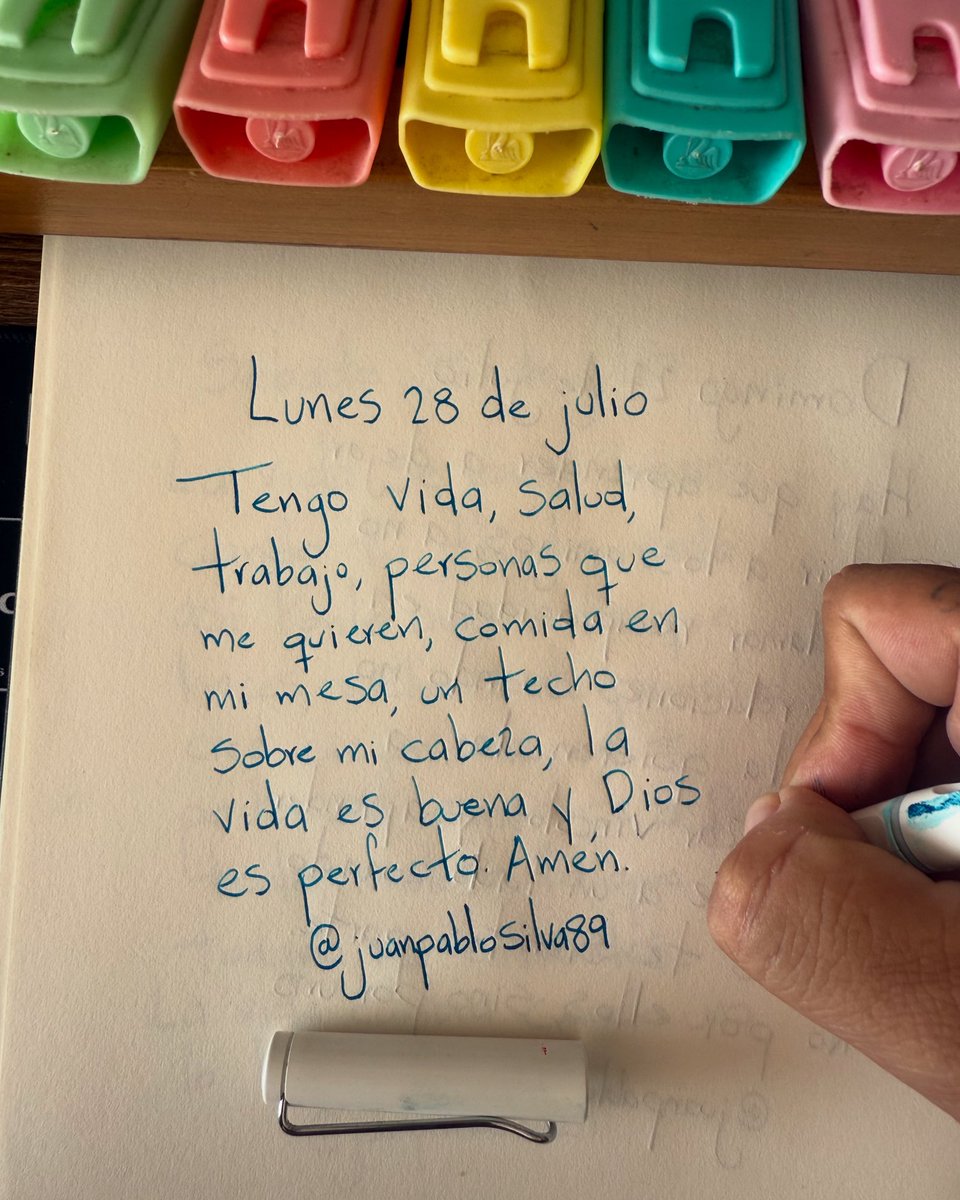 Lunes 28 de julio
Tengo vida, salud,
trabajo, personas que
me quieren, comida en
mi mesa, un techo
sobre mi cabeza, la
vida es buena y Dios
es perfecto. Amen.
@juanpablosilva89